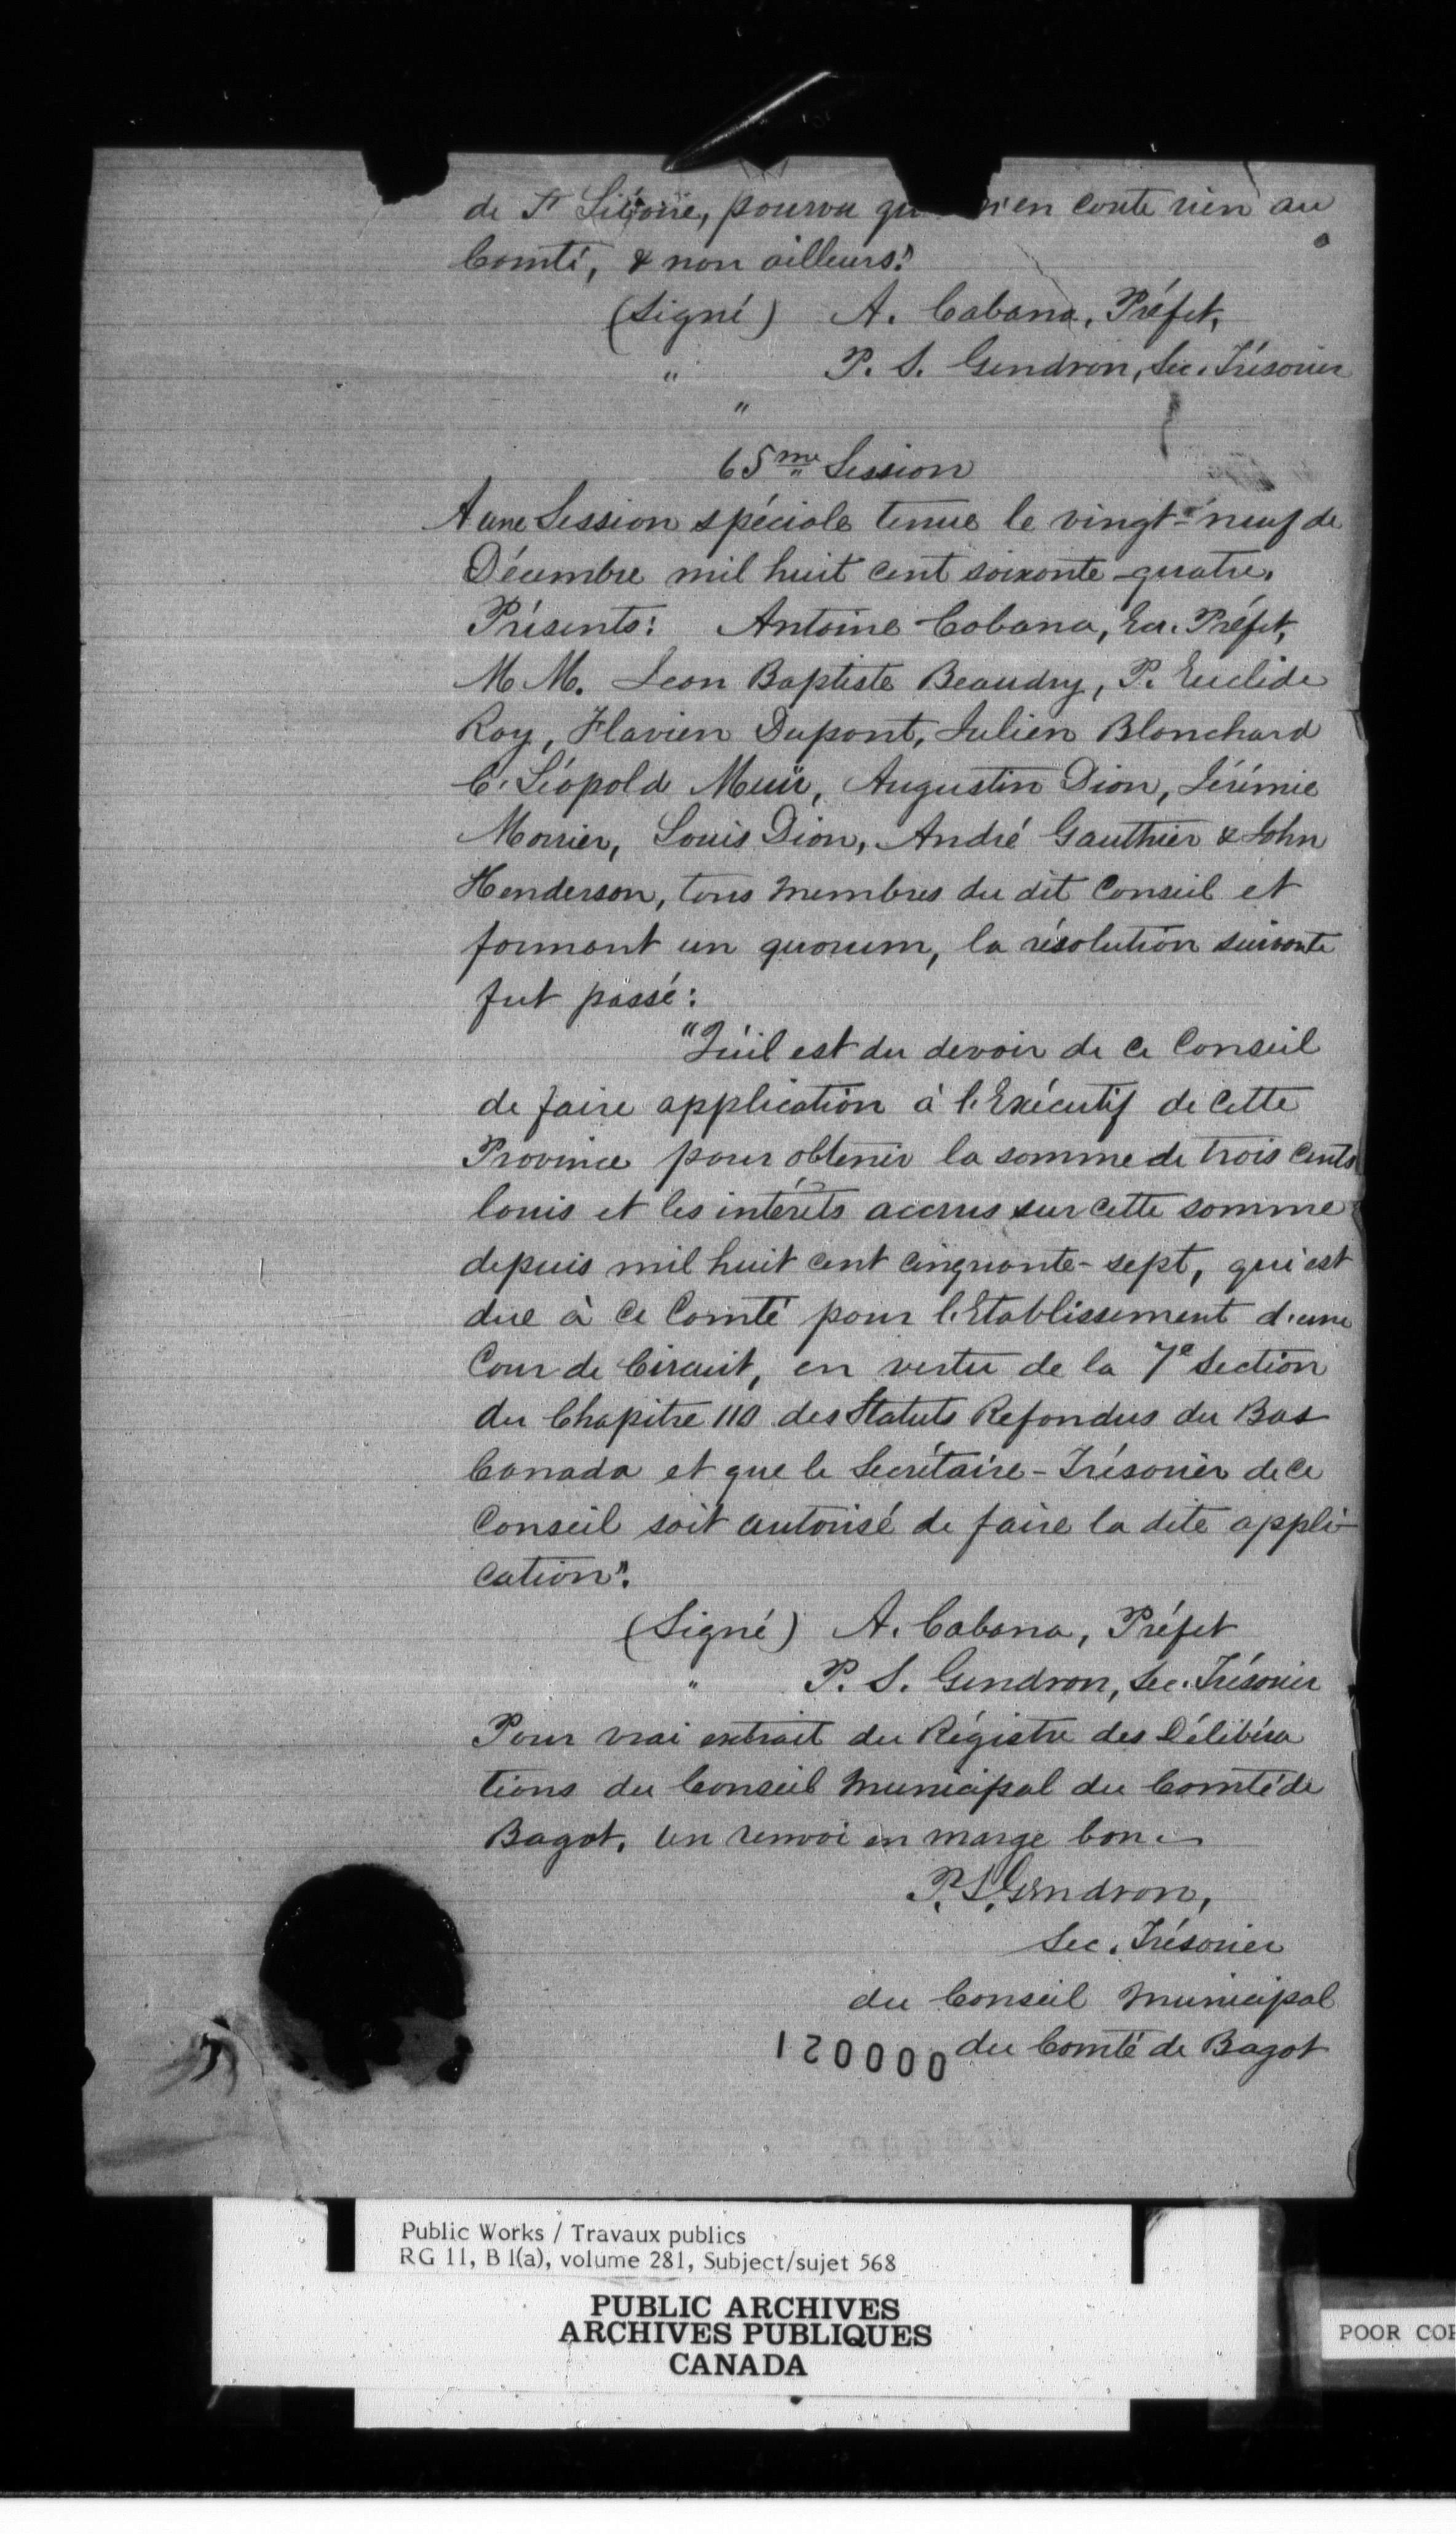 de St Liboire, pourvu qu n'en coute rien au
Comté, & non ailleurs."
(Signé) A. Cabana, Préfet,
" P. S. Gendron, Sec. Trésorier
"
65me Session
A une Session spéciale tenue le vingt-neuf de
Décembre mil huit cent soixante-quatre.
Présents: Antoine Cabana, Ecr. Préfet,
M M. Leon Baptiste Beaudry, P. Euclide
Roy, Flavien Dupont, Julien Blanchard
C. Léopold Muir, Augustin Dion, Jérémie
Morrier, Louis Dion, André Gauthier & John
Henderson, tous membres du dit Conseil et
formant un quorum, la résolution suivante
fut passé:
"Qu'il est du devoir de ce Conseil
de faire application à l'Exécutif de cette
Province pour obtenir la somme de trois cents
louis et les intérêts accrus sur cette somme
depuis mil huit cent cinquante-sept, qui est
due à ce Comté pour l'Etablissement d'une
Cour de Circuit, en vertu de la 7e Section
du Chapitre 110 des Statuts Refondus du Bas
Canada et que le Secrétaire-Trésorier de ce
Conseil soit autorisé de faire la dite appli-
cation".
(Signé) A. Cabana, Préfet
" P. S. Gendron, Sec. Trésorier
Pour vrai extrait du Régistre des Délibéra
tions du Conseil Municipal du Comté de
Bagot. Un renvoi en marge bon.
P. S. Gendron,
Sec. Trésorier
du Conseil Municipal
du Comté de Bagot
120000
Public Works / Travaux publics
RG 11, B 1(a), volume 281, Subject/sujet 568
PUBLIC ARCHIVES
ARCHIVES PUBLIQUES
CANADA
POOR COP